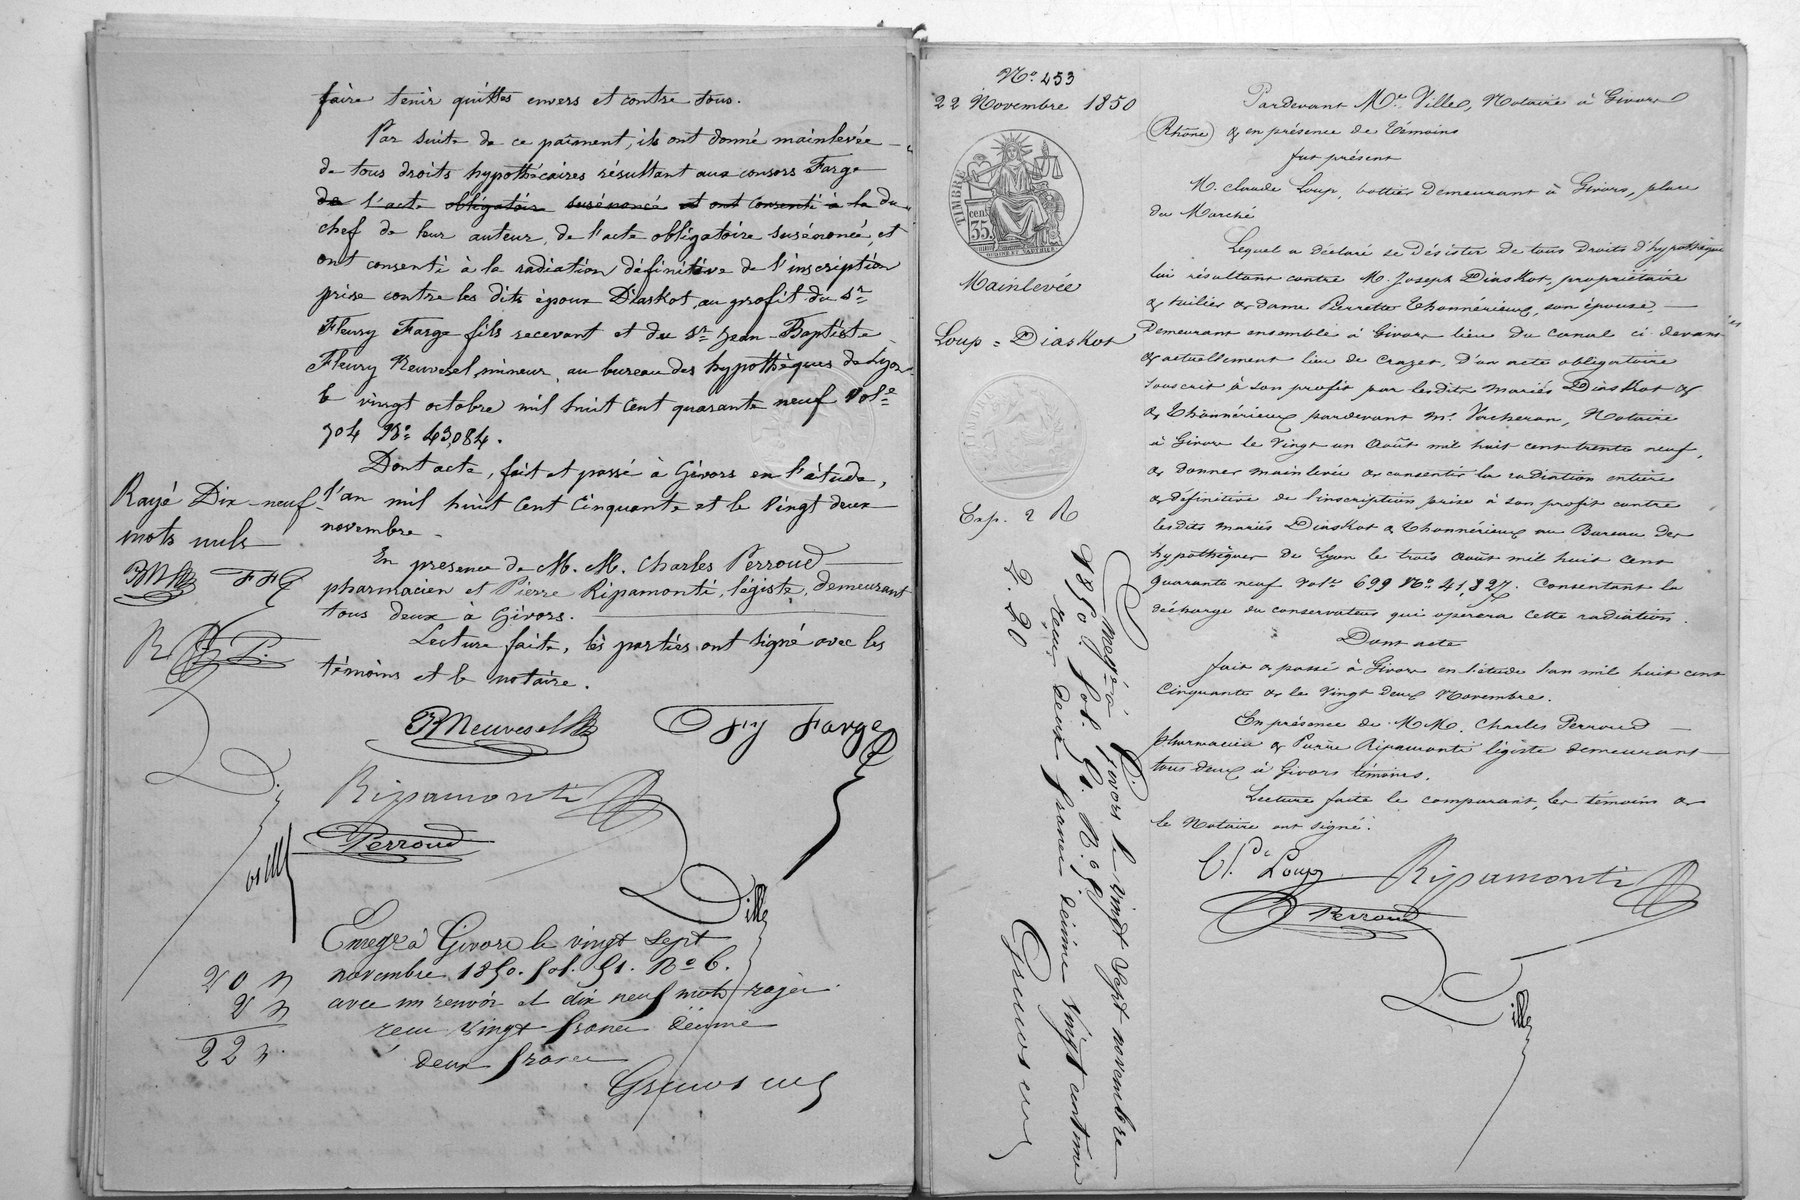 faire tenir quittes envers et contre tous.
Par suite de ce paîment, ils ont donné mainlevée
de tous droits hypothécaires résultant aux consors Farge
de l'acte obligatoire susénoncé et ont consenti à la du
chef de leur auteur, de l'acte obligatoire susénoncé, et
ont consenti à la radiation définitive de l'inscription
prise contre les dits époux Diaskot, au profit du Sr
Fleury Farge fils recevant et du Sr Jean-Baptiste
Fleury Neuvesel, mineur, au bureau des hypothèques de Lyon
le vingt octobre mil huit cent quarante neuf Vol.e
704 No 43,084.
Dont acte, fait et passé à Givors en l'étude,
l'an mil huit cent cinquante et le vingt deux
novembre.
En présence de M. M. Charles Perroud
pharmacien et Pierre Ripamonti, légiste, demeurant
tous deux à Givors.
Lecture faite, les parties ont signé avec les
témoins et le notaire.
Rayé Dix-neuf
mots nuls
FFG
Neuvesel
Fy Farge
Ripamonti
Perroud
Ville
Enregé à Givors le vingt sept
novembre 1850. fol. 51. No 6.
avec un renvoi et dix neuf mots rayés.
reçu vingt francs décime
deux francs
20 "
2 "
22 "
No 453
22 Novembre 1850
TIMBRE
cen.
35
Mainlevée
Loup = Diaskot
Exp. 2 R
2. 20
Enregé à Givors le vingt sept novembre
1850 fol. 51. No 5
reçu deux francs décime vingt centimes
Pardevant Me Ville, Notaire à Givors
(Rhône) & en présence de témoins
fut présent
M. Claude Loup, bottier demeurant à Givors, place
du Marché
Lequel a déclaré se désister de tous droits d'hypothèque
lui résultant contre M. Joseph Diaskot, propriétaire
& tuilier & dame Pierrette Thonnérieux, son épouse,
Demeurant ensemble à Givors lieu du canal ci devant
& actuellement lieu de Crazet, D'un acte obligatoire
souscrit à son profit par lesdits mariés Diaskot &
& Thonnérieux pardevant Me Vacheron, Notaire
à Givors le vingt un Août mil huit cent trente neuf,
& donner mainlevée & consentir la radiation entière
& définitive de l'inscription prise à son profit contre
lesdits mariés Diaskot & Thonnérieux au Bureau des
hypothèques de Lyon le trois Août mil huit cent
quarante neuf vol. 699 No 41,827. Consentant la
décharge du conservateur qui opérera cette radiation.
Dont acte
fait & passé à Givors en l'étude l'an mil huit cent
cinquante & le vingt deux Novembre.
En présence de M M. Charles Perroud
pharmacien & Pierre Ripamonti légiste demeurant
tous deux à Givors témoins.
Lecture faite le comparant, les témoins &
le Notaire ont signé.
Cl. de Loup
Ripamonti
Perroud
Ville